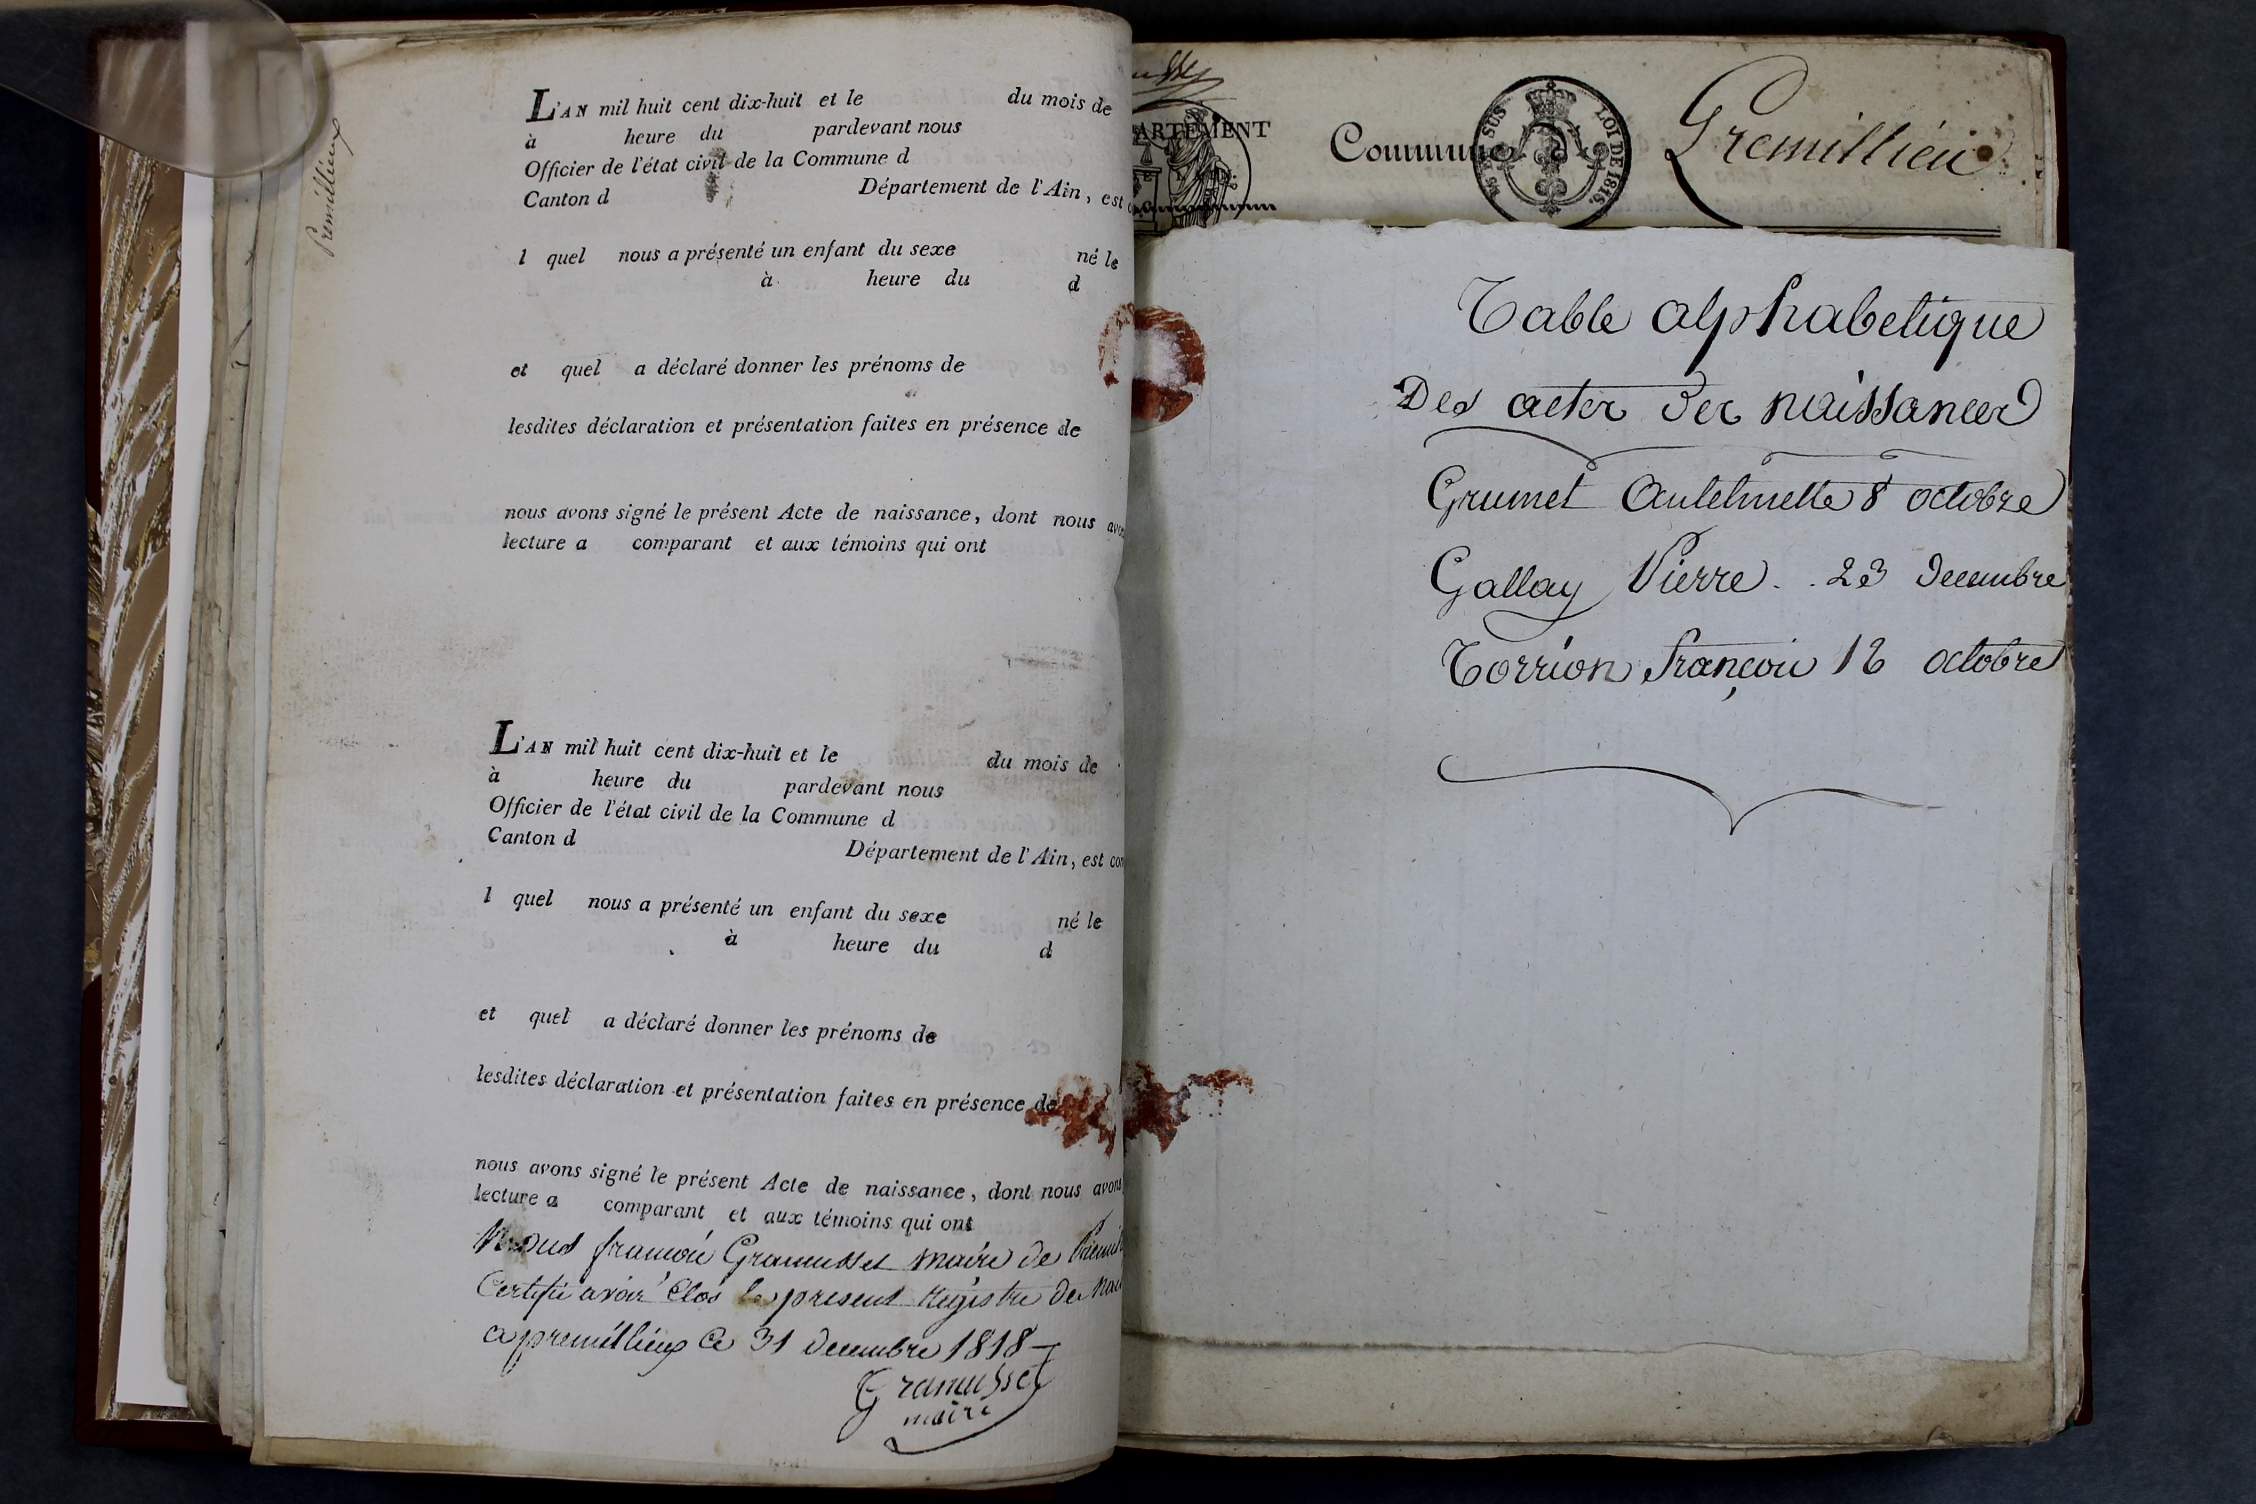 Premillieux
L'AN mil huit cent dix-huit et le du mois de
à heure du pardevant nous
Officier de l'état civil de la Commune d
Canton d Département de l'Ain, est
l quel nous a présenté un enfant du sexe né le
à heure du d
et quel a déclaré donner les prénoms de
lesdites déclaration et présentation faites en présence de
nous avons signé le présent Acte de naissance, dont nous
lecture a comparant et aux témoins qui ont
L'AN mil huit cent dix-huit et le du mois de
à heure du pardevant nous
Officier de l'état civil de la Commune d
Canton d Département de l'Ain, est
l quel nous a présenté un enfant du sexe né le
à heure du d
et quel a déclaré donner les prénoms de
lesdites déclaration et présentation faites en présence de
nous avons signé le présent Acte de naissance, dont nous avons
lecture a comparant et aux témoins qui ont
Nous françois Gramusset maire de
Certifie avoir Clos le present Registre de
a premillieux Ce 31 decembre 1818
Gramusset
maire
Commune d Premillieu
SUS
LOI DE 1816.
Table alphabetique
Des actes des naissances
Grumet Antelmette 8 octobre
Gallay Pierre . . 23 decembre
Torrion françois 12 octobre